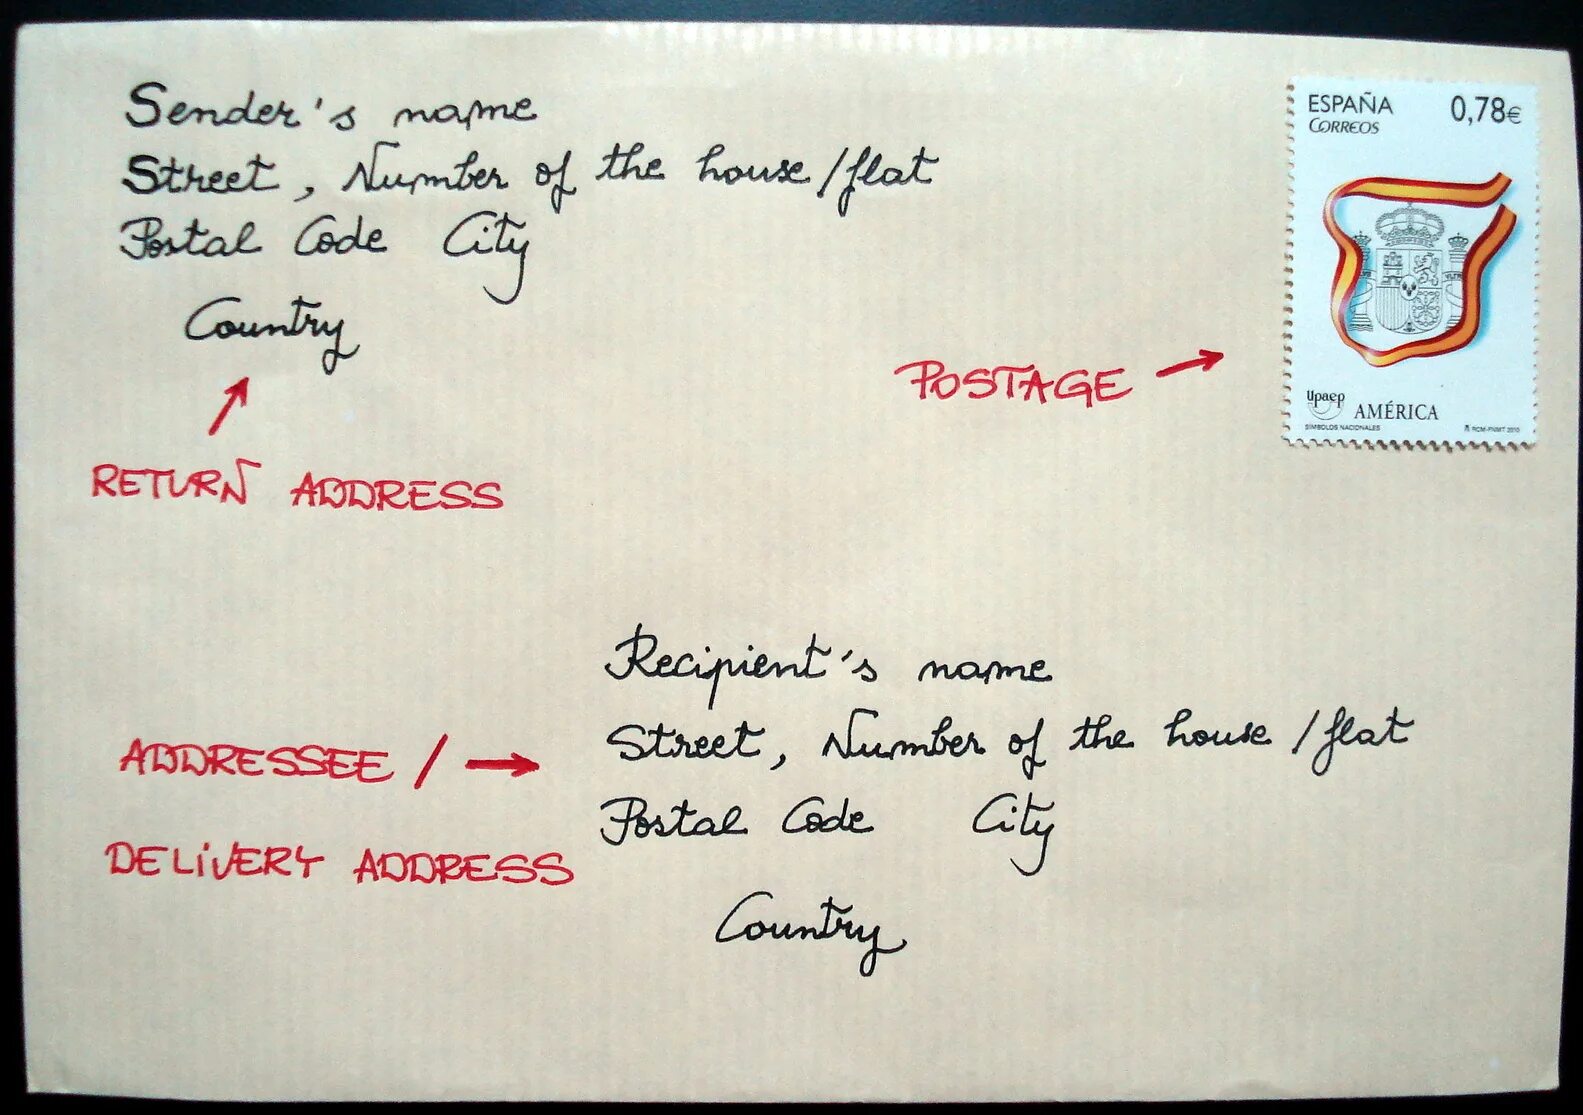 Sender's name
Street, Number of the house/flat
Postal Code City
Country
RETURN ADDRESS
ESPAÑA 0,78€
CORREOS
POSTAGE
Upaep AMÉRICA
SÍMBOLOS NACIONALES RCM-FNMT 2010
Recipient's name
Street, Number of the house/flat
Postal Code City
Country
ADDRESSEE /
DELIVERY ADDRESS